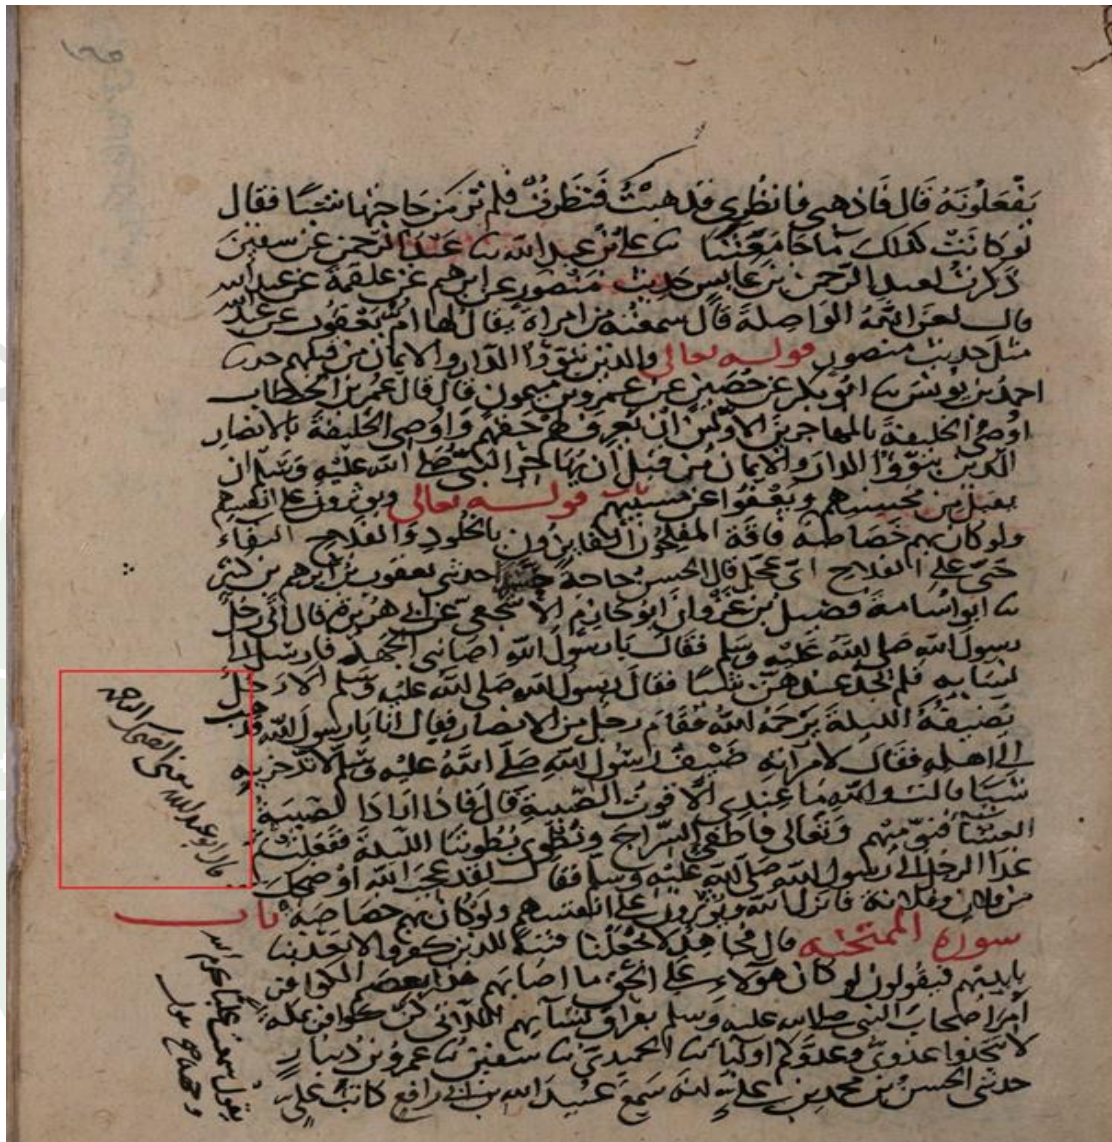 يفعلونه قال فاذهبي فانظري فذهبت فنظرت فلم تر من حاجتها شيئا فقال
لو كانت كذلك ما جامعتنا ثنا علي بن عبد الله ثنا عبد الرحمن عن سفين
ذكرت لعبد الرحمن بن عابس حديث منصور عن ابرهيم عن علقمة عن عبد الله
قال لعن الله الواصلة قال سمعته من امراة يقال لها ام يعقوب عن عبد الله
مثل حديث منصور قوله تعالى والذين تبوؤا الدار والايمان من قبلهم حدثنا
احمد بن يونس ثنا ابو بكر عن حصين عن عمرو بن ميمون قال قال عمر بن الخطاب
اوصي الخليفة بالمهاجرين الاولين ان يعرف لهم حقهم واوصي الخليفة بالانصار
الذين تبوؤا الدار والايمان من قبل ان يهاجر النبي صلى الله عليه وسلم ان
يقبل من محسنهم ويعفوا عن مسيهم باب قوله تعالى ويوثرون على انفسهم
ولو كان بهم خصاصة فاقة المفلحون الفايزون بالخلود والفلاح البقاء
حي على الفلاح اي عجل قال الحسن حاجة حسدا حدثني يعقوب بن ابرهيم بن كثير
ثنا ابو اسامة فضيل بن غزوان ابو حازم الاشجعي عن ابي هريرة قال اتى رجل
رسول الله صلى الله عليه وسلم فقال يا رسول الله اصابني الجهد فارسل الى
نسايه فلم يجد عندهن شيئا فقال رسول الله صلى الله عليه وسلم الا رجل
يضيفه الليلة يرحمه الله فقام رجل من الانصار فقال انا يا رسول الله فذهب
الى اهله فقال لامراته ضيف رسول الله صلى الله عليه وسلم لا تدخريه
شيئا قالت والله ما عندي الا قوت الصبية قال فاذا اراد الصبية
العشا فنوميهم وتعالي فاطفي السراج ونطوي بطوننا الليلة ففعلت ثم
غدا الرجل الى رسول الله صلى الله عليه وسلم فقال لقد عجب الله او ضحك
من فلان وفلانة فانزل الله ويوثرون على انفسهم ولو كان بهم خصاصة باب
سورة الممتحنه قال مجاهد لا تجعلنا فتنة للذين كفروا لا تعذبنا
بايديهم فيقولون لو كان هؤلاء على الحق ما اصابهم هذا بعصم الكوافر
امر اصحاب النبي صلى الله عليه وسلم بفراق نسايهم اللاتي كن كوافر بمكة
لا تتخذوا عدوي وعدوكم اوليا ثنا الحميدي ثنا سفين ثنا عمرو بن دينار
حدثني الحسن بن محمد بن علي انه سمع عبيد الله بن ابي رافع كاتب علي
قال ابو عبد الله معنى الضحك الرحمة
يقول سمعت عليا